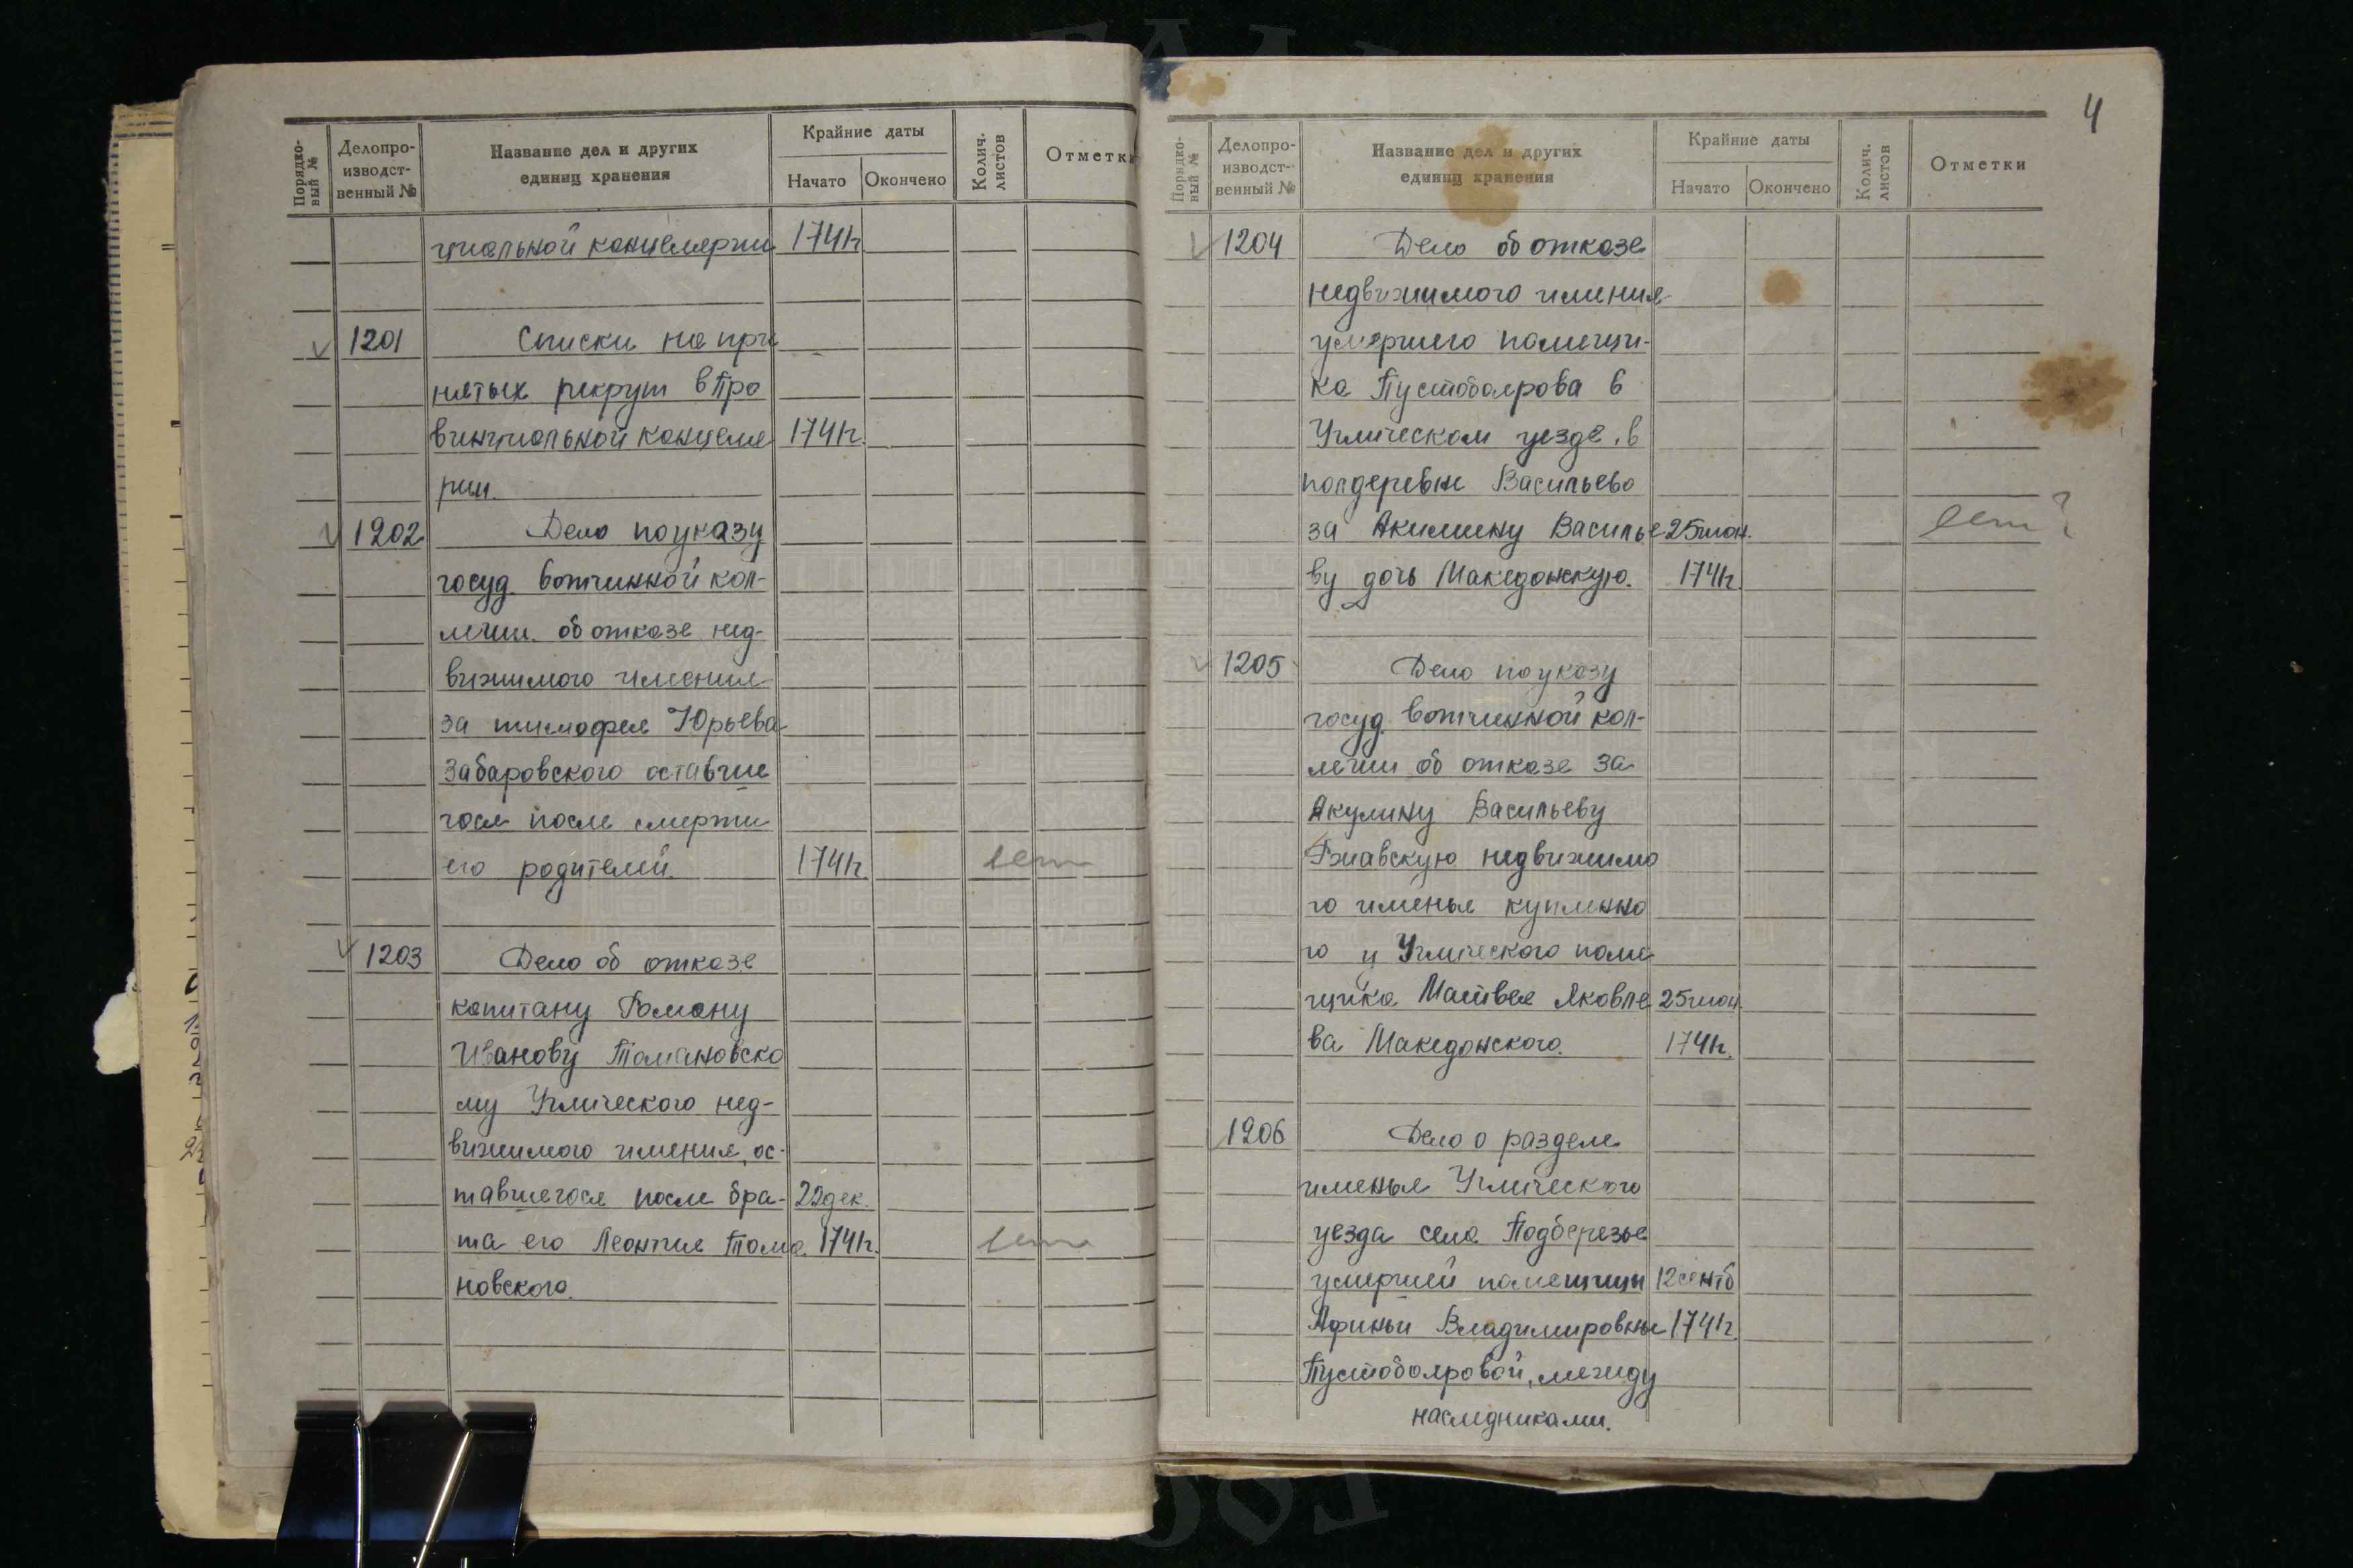 Порядко-
вый №
Делопро-
изводст-
венный №
Название дел и других
единиц хранения
Крайние даты
Начато
Окончено
Колич.
листов
Отметки
циальной канцелярии 174 г.
1201 Списки на при
нятых рекрут в Про
винциальной канцеля 174 г.
рии.
1202 Дело по указу
госуд. вотчинной кол-
легии об отказе нед-
вижимого имения
за тимофея Юрьева
Забаровского оставше
гося после смерти
его родителей. 174 г. есть
1203 Дело об отказе
капитану Роману
Иванову Томановско
му Угличского нед-
вижимого имения, ос-
тавшегося после бра- 22 дек.
та его Леонтия Тома 174 г. есть
новского.
4
Порядко-
вый №
Делопро-
изводст-
венный №
Название дел и других
единиц хранения
Крайние даты
Начато
Окончено
Колич.
листов
Отметки
1204 Дело об отказе
недвижимого имения
умершего помещи-
ка Пустобоярова в
Угличском уезде, в
полдеревне Васильево
за Акилину Василье 25 июн. есть ?
ву дочь Македонскую. 174 г.
1205 Дело по указу
госуд. вотчинной кол-
легии об отказе за
Акулину Васильеву
Ржавскую недвижимо
го именья купленно
го у Угличского поме
щика Матвея Яковле 25 июн.
ва Македонского. 174 г.
1206 Дело о разделе
именья Угличского
уезда села Подберезье
умершей помещицы 12 сентб
Афиньи Владимировны 174 г.
Пустобояровой, между
наследниками.